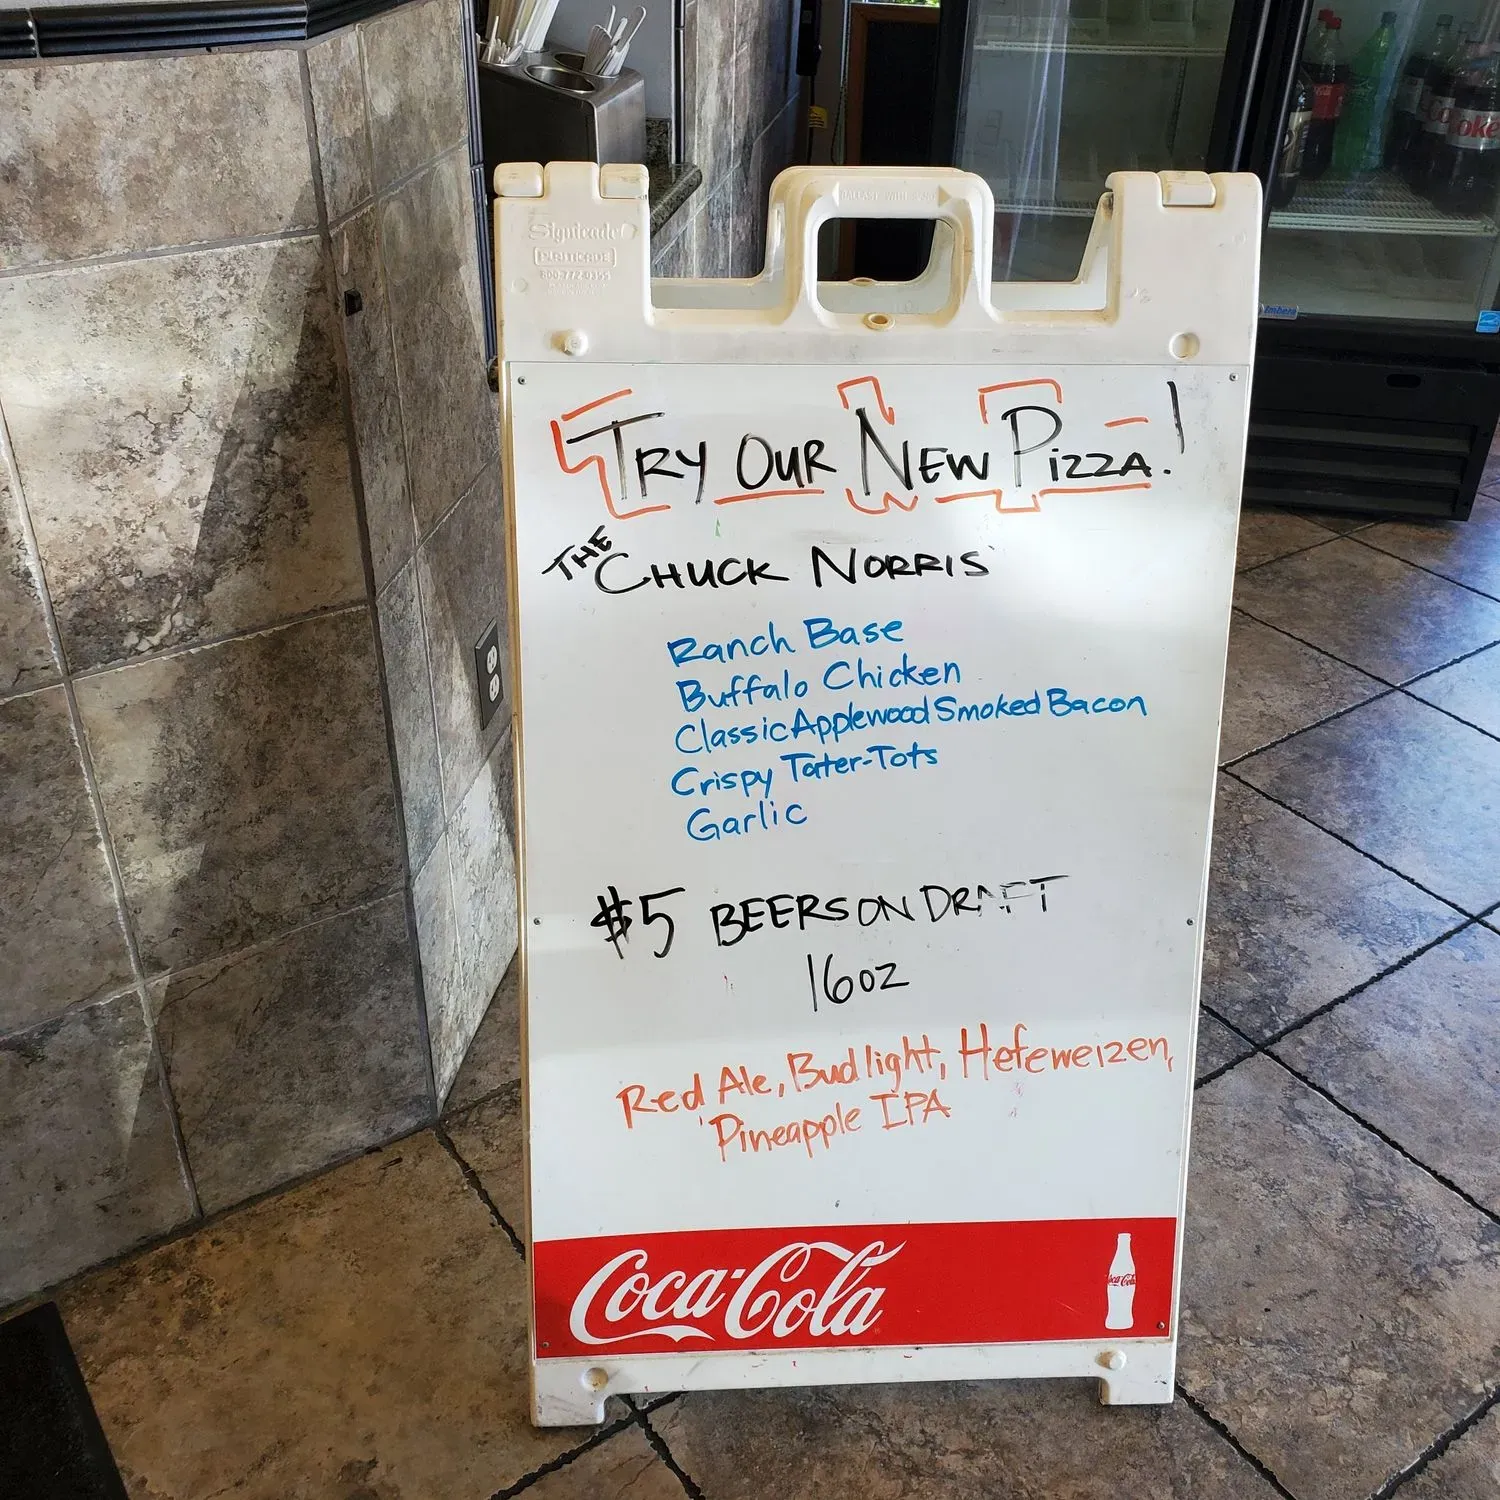 Signicade
PLASTICADE
800-772-0355
BALLAST WITH SAND
Coke
Imbera
TRY OUR NEW PIZZA!
THE CHUCK NORRIS
Ranch Base
Buffalo Chicken
Classic Applewood Smoked Bacon
Crispy Tater-Tots
Garlic
$5 BEERS ON DRAFT
16oz
Red Ale, Bud light, Hefeweizen,
Pineapple IPA
Coca-Cola
Coca-Cola